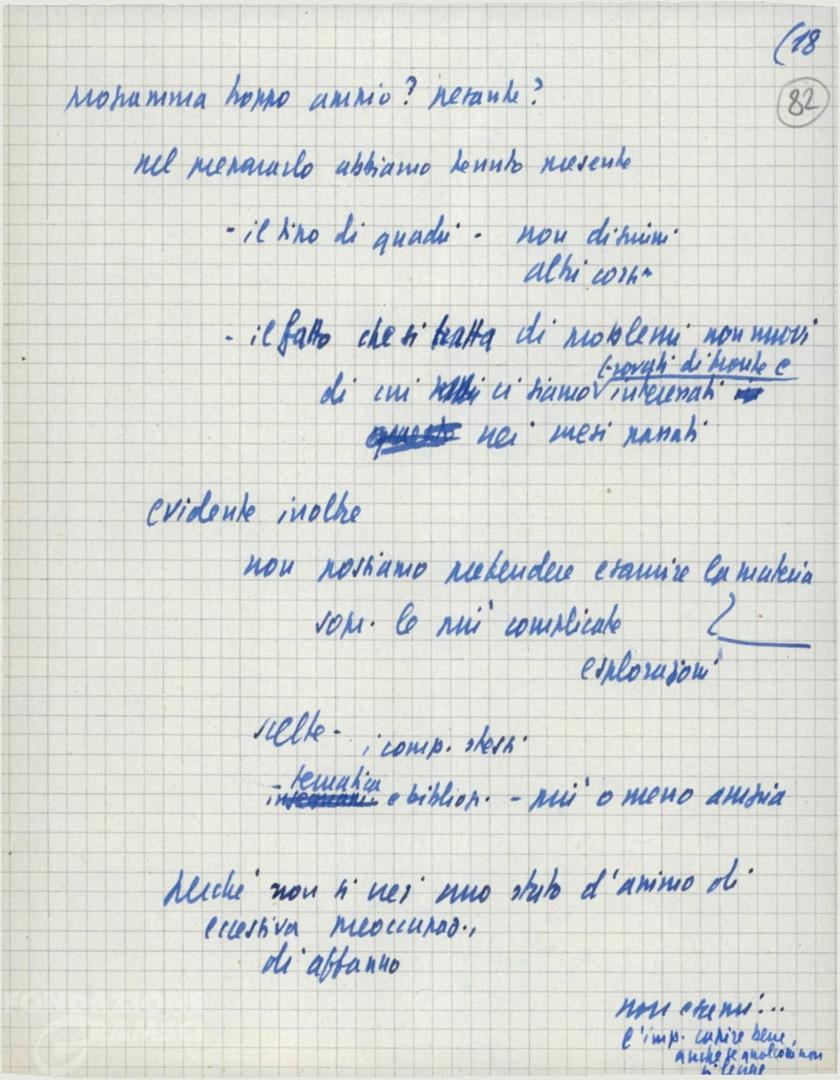 (18
82
programma troppo ampio? pesante?
nel prepararlo abbiamo tenuto presente
- il tipo di quadri - non disprimi
altri corsi
- il fatto che si tratta di problemi non nuovi
trovati di fronte e
di cui ci siamo interessati
questo nei mesi passati
evidente inoltre
non possiamo pretendere esaurire la materia
sopr. le più complicate
esplorazioni
scelte - i comp. stessi
- tematica
insegnam. e bibliogr. - più o meno ampia
perché non si crei uno stato d'animo di
eccessiva preoccupaz.,
di affanno
non esami!...
l'imp. capire bene,
anche se qualcosa non
si legge
FONDAZIONE